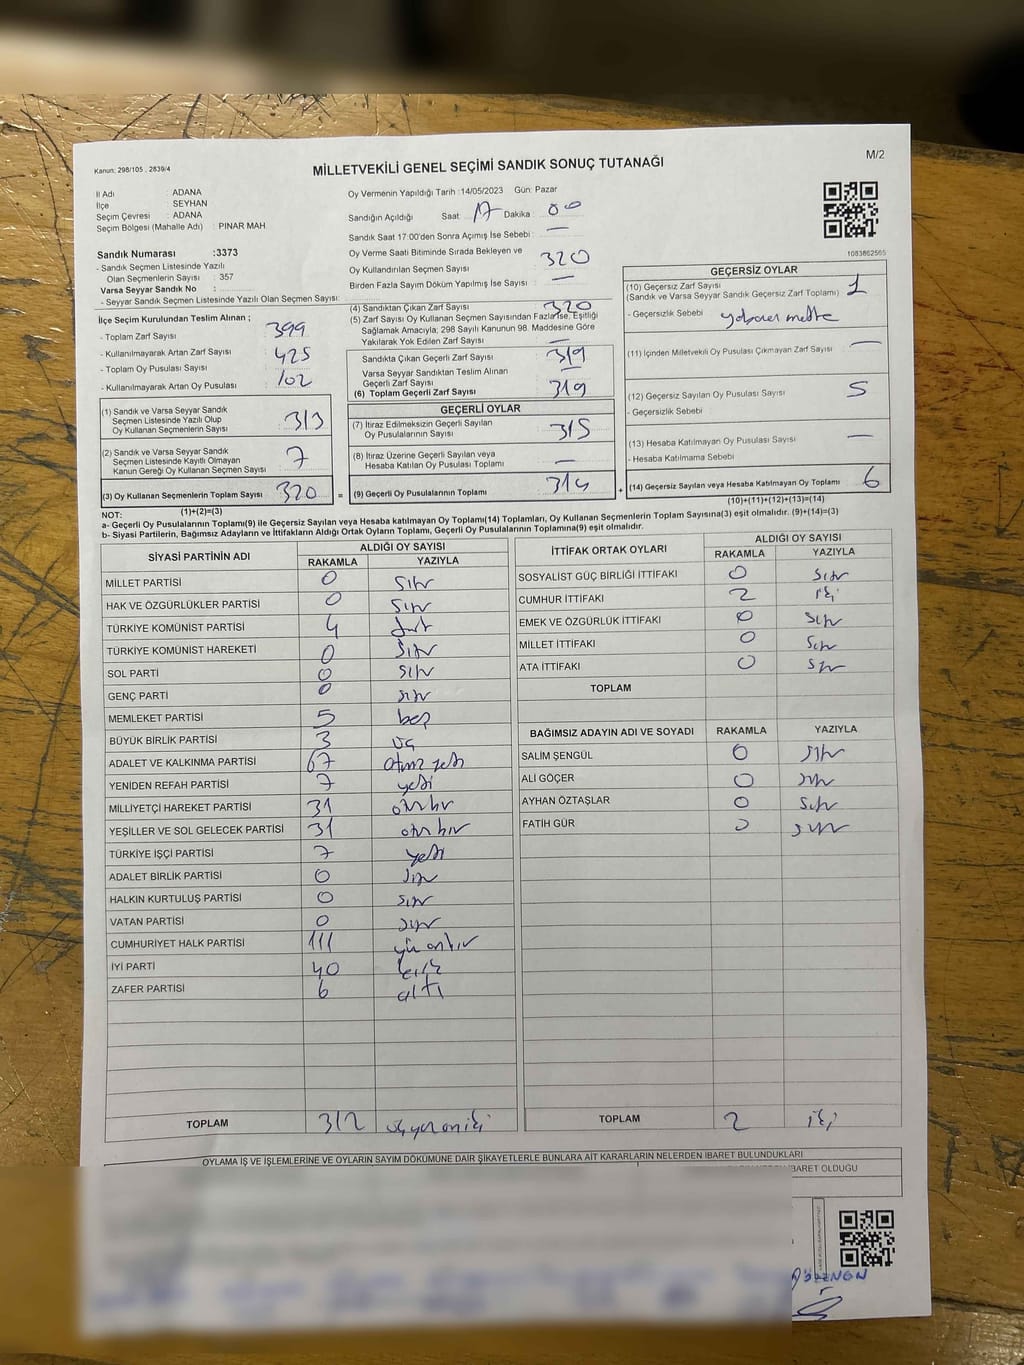 Kanun: 298/105 , 2839/4
MİLLETVEKİLİ GENEL SEÇİMİ SANDIK SONUÇ TUTANAĞI
M/2
İl Adı : ADANA
İlçe : SEYHAN
Seçim Çevresi : ADANA
Seçim Bölgesi (Mahalle Adı) : PINAR MAH
Sandık Numarası :3373
- Sandık Seçmen Listesinde Yazılı
Olan Seçmenlerin Sayısı : 357
Varsa Seyyar Sandık No :
- Seyyar Sandık Seçmen Listesinde Yazılı Olan Seçmen Sayısı:
Oy Vermenin Yapıldığı Tarih :14/05/2023 Gün: Pazar
Sandığın Açıldığı Saat : 17 Dakika : 00
Sandık Saat 17:00'den Sonra Açımış İse Sebebi : —
Oy Verme Saati Bitiminde Sırada Bekleyen ve
Oy Kullandırılan Seçmen Sayısı : 320
Birden Fazla Sayım Döküm Yapılmış İse Sayısı : —
1083862565
İlçe Seçim Kurulundan Teslim Alınan ;
- Toplam Zarf Sayısı : 399
- Kullanılmayarak Artan Zarf Sayısı : 425
- Toplam Oy Pusulası Sayısı
- Kullanılmayarak Artan Oy Pusulası : 102
(1) Sandık ve Varsa Seyyar Sandık
Seçmen Listesinde Yazılı Olup
Oy Kullanan Seçmenlerin Sayısı : 313
(2) Sandık ve Varsa Seyyar Sandık
Seçmen Listesinde Kayıtlı Olmayan
Kanun Gereği Oy Kullanan Seçmen Sayısı : 7
(3) Oy Kullanan Seçmenlerin Toplam Sayısı : 320 =
(1)+(2)=(3)
(4) Sandıktan Çıkan Zarf Sayısı : 320
(5) Zarf Sayısı Oy Kullanan Seçmen Sayısından Fazla İse, Eşitliği
Sağlamak Amacıyla; 298 Sayılı Kanunun 98. Maddesine Göre
Yakılarak Yok Edilen Zarf Sayısı : —
Sandıkta Çıkan Geçerli Zarf Sayısı : 319
Varsa Seyyar Sandıktan Teslim Alınan
Geçerli Zarf Sayısı : —
(6) Toplam Geçerli Zarf Sayısı : 319
GEÇERLİ OYLAR
(7) İtiraz Edilmeksizin Geçerli Sayılan
Oy Pusulalarının Sayısı : 315
(8) İtiraz Üzerine Geçerli Sayılan veya
Hesaba Katılan Oy Pusulası Toplamı : —
(9) Geçerli Oy Pusulalarının Toplamı : 314 +
GEÇERSİZ OYLAR
(10) Geçersiz Zarf Sayısı
(Sandık ve Varsa Seyyar Sandık Geçersiz Zarf Toplamı) : 1
- Geçersizlik Sebebi :
(11) İçinden Milletvekili Oy Pusulası Çıkmayan Zarf Sayısı : —
(12) Geçersiz Sayılan Oy Pusulası Sayısı : 5
- Geçersizlik Sebebi
(13) Hesaba Katılmayan Oy Pusulası Sayısı : —
- Hesaba Katılmama Sebebi
(14) Geçersiz Sayılan veya Hesaba Katılmayan Oy Toplamı : 6
(10)+(11)+(12)+(13)=(14)
NOT:
a- Geçerli Oy Pusulalarının Toplamı(9) ile Geçersiz Sayılan veya Hesaba katılmayan Oy Toplamı(14) Toplamları, Oy Kullanan Seçmenlerin Toplam Sayısına(3) eşit olmalıdır. (9)+(14)=(3)
b- Siyasi Partilerin, Bağımsız Adayların ve İttifakların Aldığı Ortak Oyların Toplamı, Geçerli Oy Pusulalarının Toplamına(9) eşit olmalıdır.
SİYASİ PARTİNİN ADI ALDIĞI OY SAYISI
RAKAMLA YAZIYLA
MİLLET PARTİSİ 0 sıfır
HAK VE ÖZGÜRLÜKLER PARTİSİ 0 sıfır
TÜRKİYE KOMÜNİST PARTİSİ 4 dört
TÜRKİYE KOMÜNİST HAREKETİ 0 sıfır
SOL PARTİ 0 sıfır
GENÇ PARTİ 0 sıfır
MEMLEKET PARTİSİ 5 beş
BÜYÜK BİRLİK PARTİSİ 3 üç
ADALET VE KALKINMA PARTİSİ 67 altmış yedi
YENİDEN REFAH PARTİSİ 7 yedi
MİLLİYETÇİ HAREKET PARTİSİ 31 otuz bir
YEŞİLLER VE SOL GELECEK PARTİSİ 31 otuz bir
TÜRKİYE İŞÇİ PARTİSİ 7 yedi
ADALET BİRLİK PARTİSİ 0 sıfır
HALKIN KURTULUŞ PARTİSİ 0 sıfır
VATAN PARTİSİ 0 sıfır
CUMHURİYET HALK PARTİSİ 111 yüz onbir
İYİ PARTİ 40 kırk
ZAFER PARTİSİ 6 altı
TOPLAM 312 üçyüz oniki
İTTİFAK ORTAK OYLARI ALDIĞI OY SAYISI
RAKAMLA YAZIYLA
SOSYALİST GÜÇ BİRLİĞİ İTTİFAKI 0 sıfır
CUMHUR İTTİFAKI 2 iki
EMEK VE ÖZGÜRLÜK İTTİFAKI 0 sıfır
MİLLET İTTİFAKI 0 sıfır
ATA İTTİFAKI 0 sıfır
TOPLAM
BAĞIMSIZ ADAYIN ADI VE SOYADI RAKAMLA YAZIYLA
SALİM ŞENGÜL 0 sıfır
ALİ GÖÇER 0 sıfır
AYHAN ÖZTAŞLAR 0 sıfır
FATİH GÜR 0 sıfır
TOPLAM 2 iki
OYLAMA İŞ VE İŞLEMLERİNE VE OYLARIN SAYIM DÖKÜMÜNE DAİR ŞİKAYETLERLE BUNLARA AİT KARARLARIN NELERDEN İBARET BULUNDUKLARI
İBARET OLDUĞU